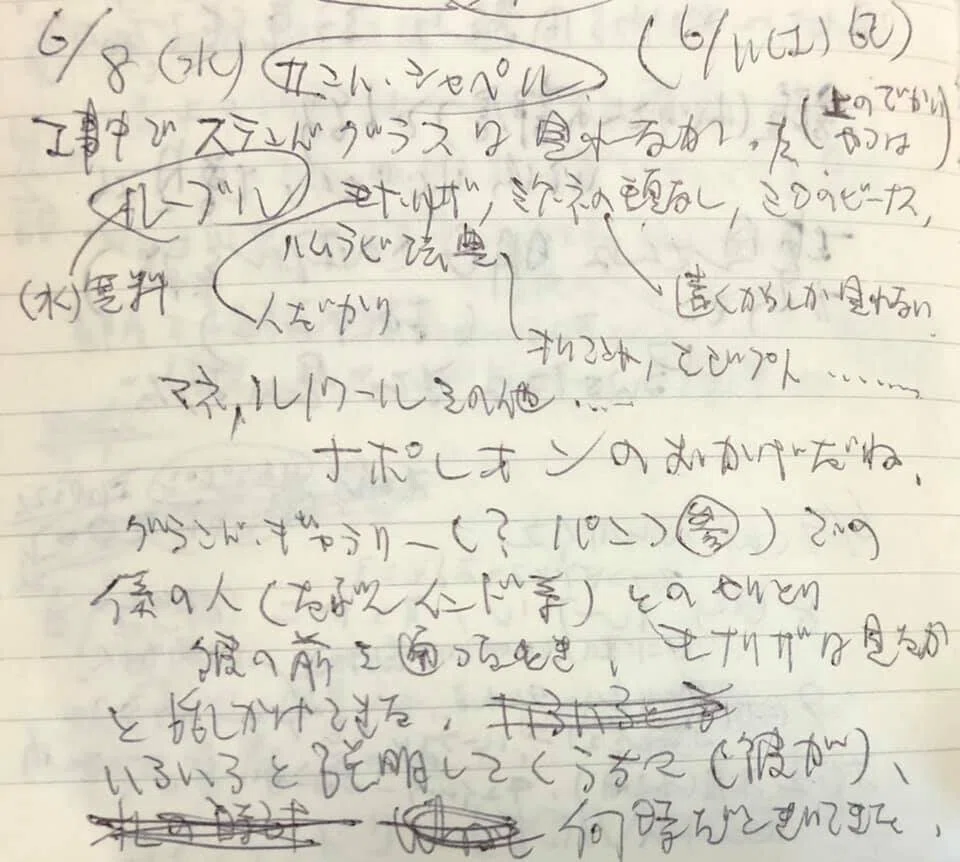 6/8 (水) サン・シャペル (6/11(土)記)
工事中でステンドグラスは見れなかった (上のでかい やつは)
ルーブル モナ・リザ, ミケ ネの頭なし, ミロのビーナス,
(水)無料 ハムラビ法典
人だかり 遠くからしか見れない
ギリシャ, エジプト ........
マネ, ルノワールその他 ....
ナポレオンのおかげだね.
グランド・ギャラリー(? パンフ 参) での
係の人(たぶんインド系)とのやりとり
彼の前を通ったとき, モナリザは見たか
と話しかけてきた.
いろいろと説明してくうちに(彼が)、
何時だときいてきた.